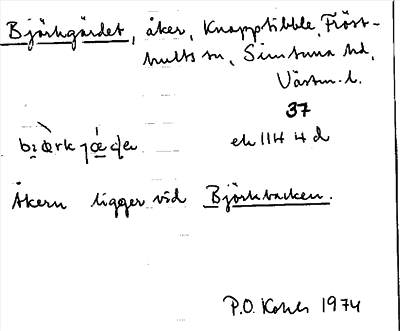 Björkgärdet, åker, Knapptibble, Fröst-
hults sn, Simtuna hd,
Västm. l.
37
ek 11H 4 d
Åkern ligger vid Björkbacken.
P.O. 1974